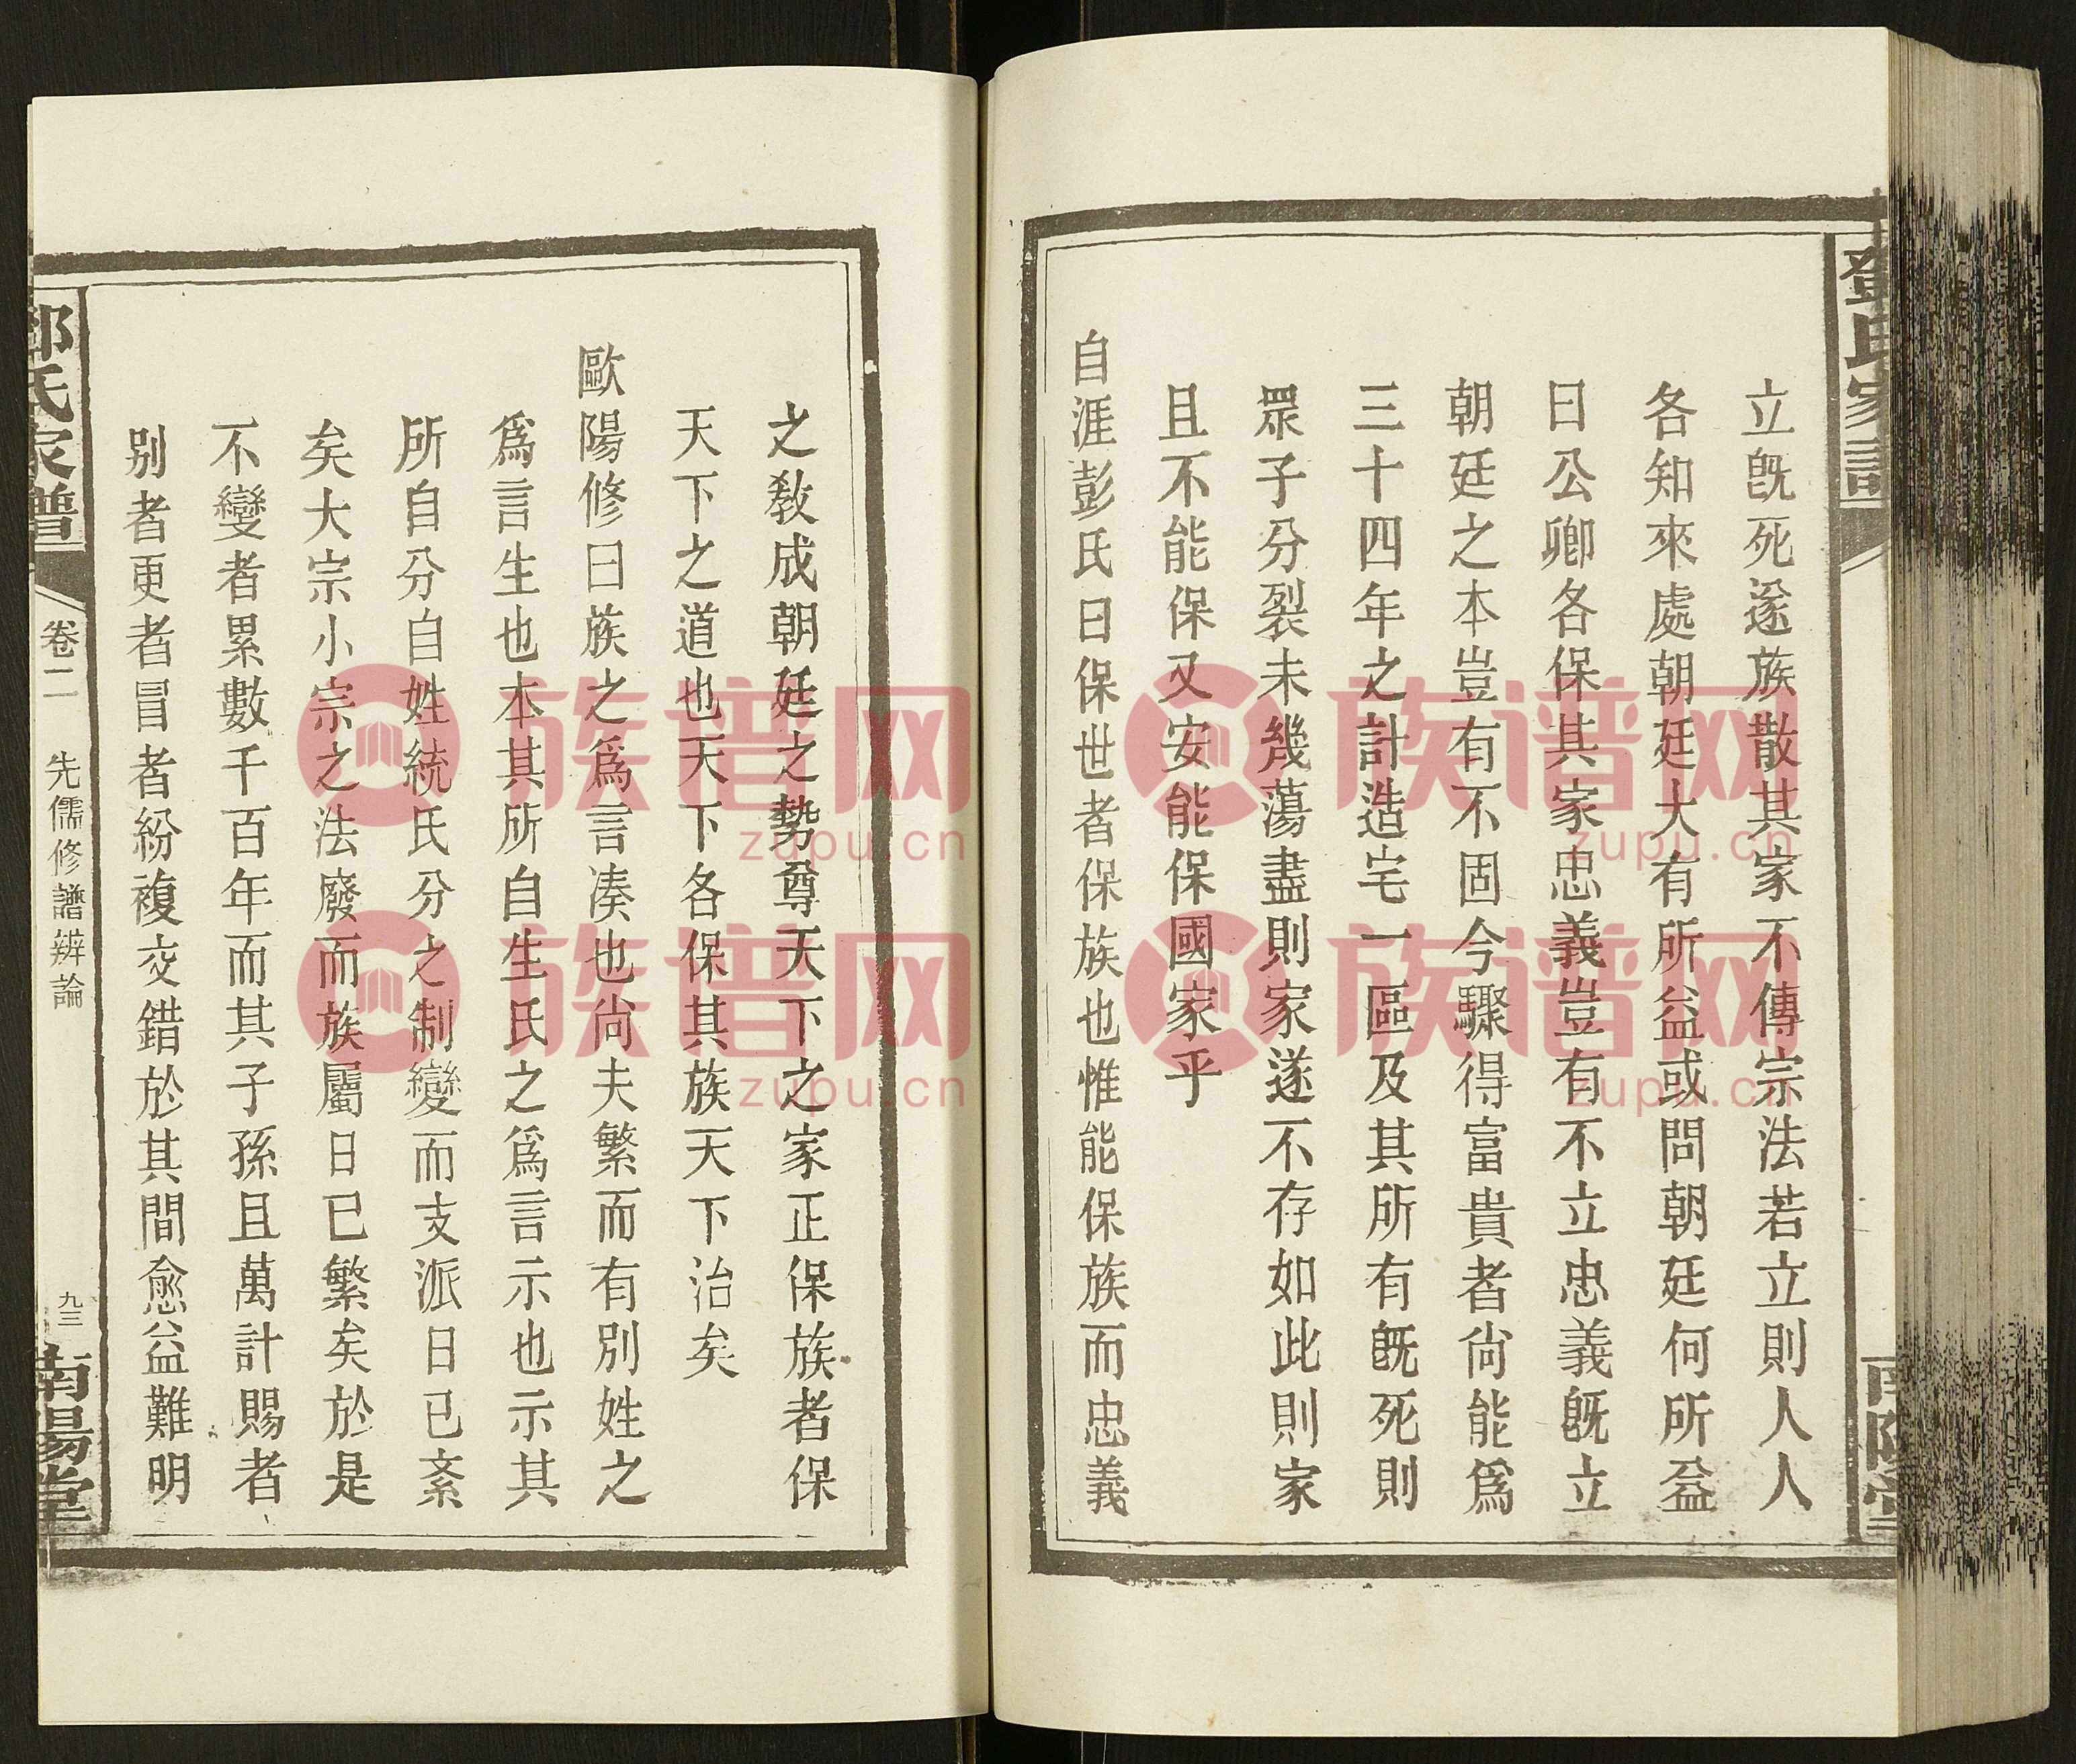 鄧氏家譜
南陽堂
立旣死遂族散其家不傳宗法若立則人人
各知來處朝廷大有所益或問朝廷何所益
曰公卿各保其家忠義豈有不立忠義旣立
朝廷之本豈有不固今驟得富貴者尙能爲
三十四年之計造宅一區及其所有旣死則
眾子分裂未幾蕩盡則家遂不存如此則家
且不能保又安能保國家乎
自涯彭氏曰保世者保族也惟能保族而忠義
之敎成朝廷之勢尊天下之家正保族者保
天下之道也天下各保其族天下治矣
歐陽修曰蔟之爲言湊也尙夫繁而有別姓之
爲言生也本其所自生氏之爲言示也示其
所自分自姓統氏分之制變而支派日已紊
矣大宗小宗之法廢而族屬日已繁矣於是
不變者累數千百年而其子孫且萬計賜者
別者更者冒者紛複交錯於其間愈益難明
鄧氏家譜
卷二
先儒修譜辨論
九三
南陽堂
族谱网
zupu.cn
族谱网
zupu.cn
族谱网
zupu.cn
族谱网
zupu.cn